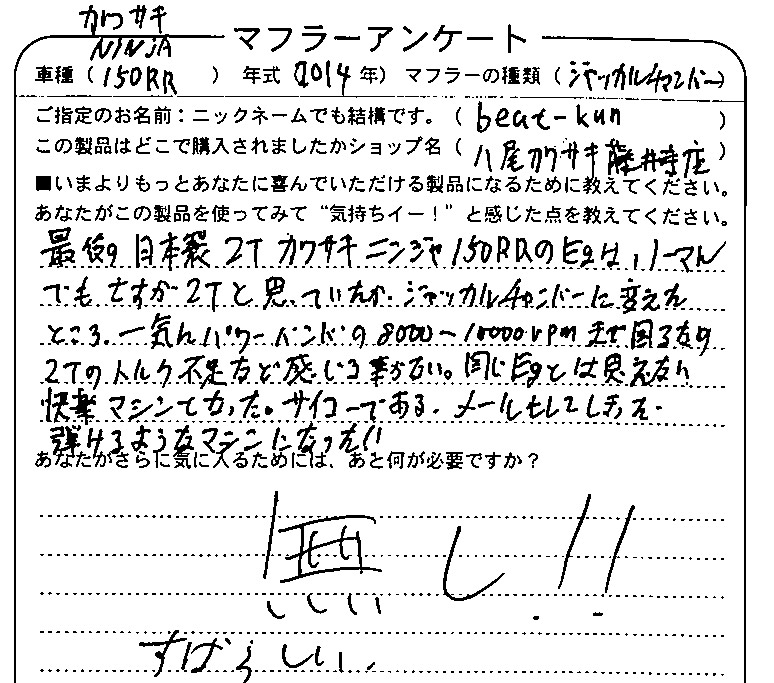 カワサキ
NINJA
マフラーアンケート
車種（150RR） 年式（2014年） マフラーの種類（ジャッカルチャンバー）
ご指定のお名前：ニックネームでも結構です。（beat-kun）
この製品はどこで購入されましたかショップ名（八尾カワサキ藤井寺店）
■いまよりもっとあなたに喜んでいただける製品になるために教えてください。
あなたがこの製品を使ってみて“気持ちイー！”と感じた点を教えてください。
最後の日本製2Tカワサキニンジャ150RRのEgは、ノーマル
でもさすが2Tと思っていたが、ジャッカルチャンバーに変えた
ところ、一気にパワーバンドの8000～10000rpmまで回るなり
2Tのトルク不足など感じる事がない。同じEgとは思えない
快楽マシンてなった。サイコーである。メールもしてしまった
弾けるようなマシンになった!!
あなたがさらに気に入るためには、あと何が必要ですか？
無し!!
すばらしい、